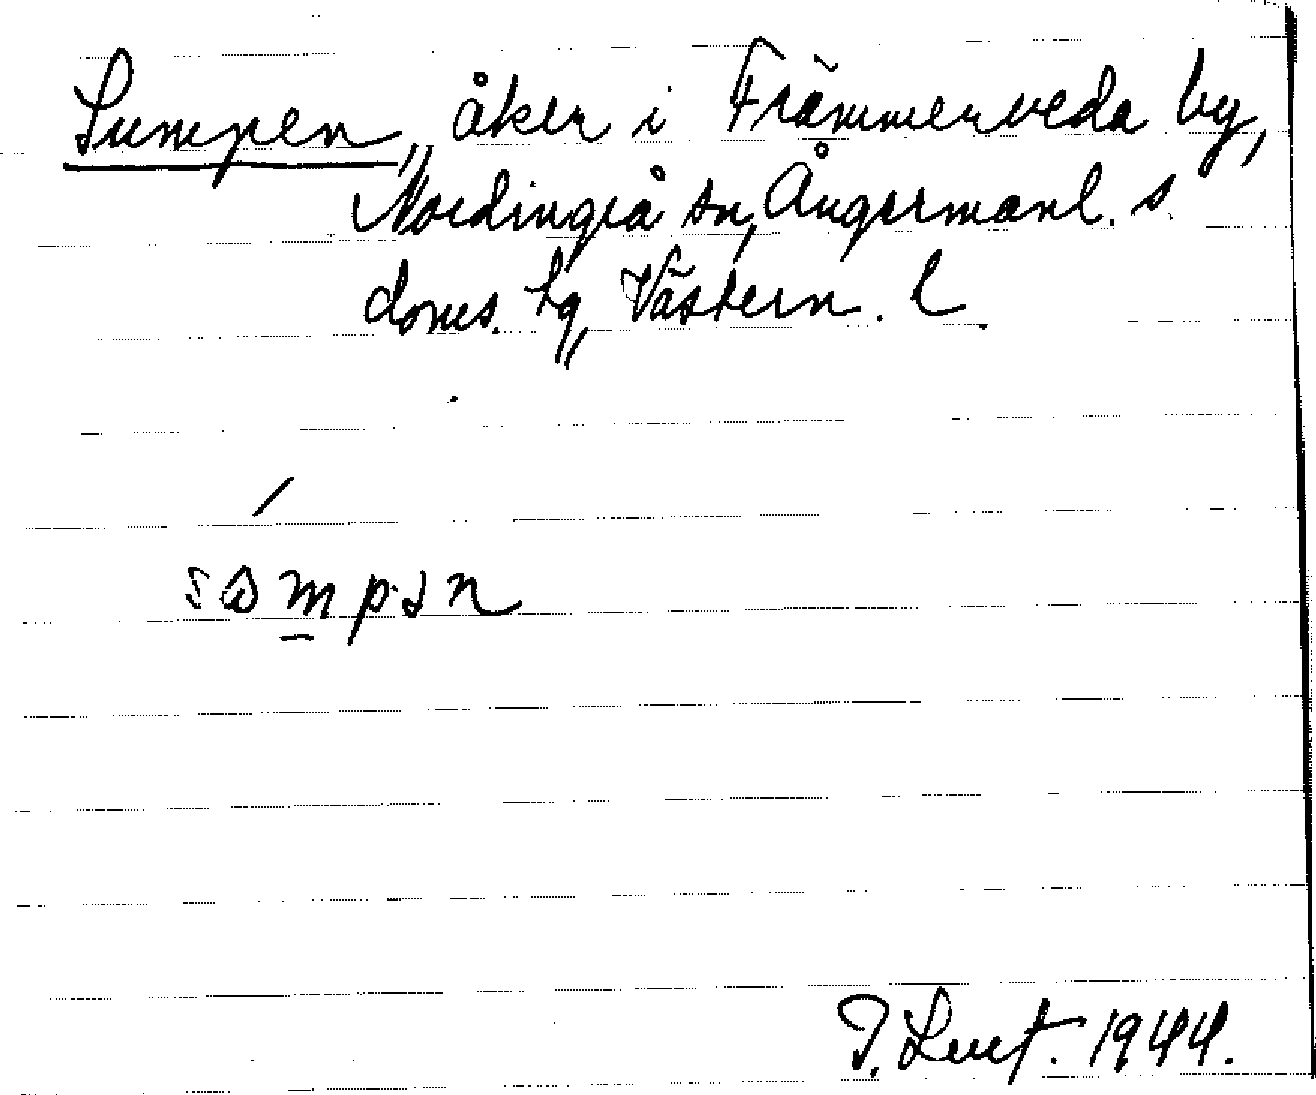 Sumpen, åker i Främmerveda by,
Nordingrå sn, Ångermanl. s.
doms. hg, Västern. l.
sɷmpən
1944.